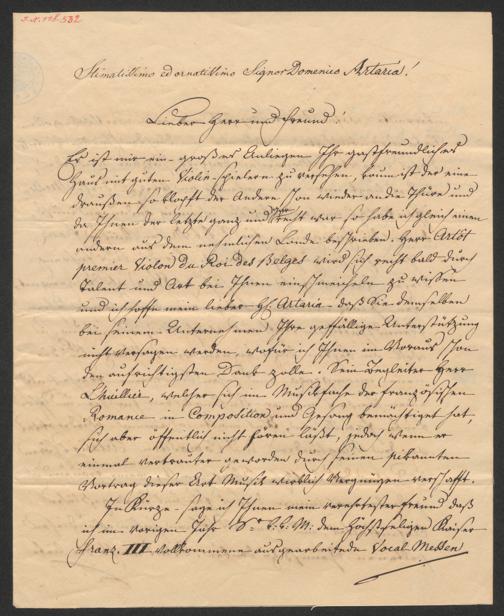 I.N. 128.532
Stimatissimo ed ornatissimo Signor Domenico Artaria!
Lieber Herr und Freund!
Es ist mir ein großes Anliegen Ihr gastfreundliches
Haus mit guten Violin-spielern zu versehen, kaum ist der eine
draußen so klopft der Andere schon wieder an die Thüre und
da Ihnen der letzte ganz und recht war so habe ich gleich einen
andern aus dem nehmlichen Lande beschrieben. Herr Artôt
premier Violon du Roi des Belges wird sich recht bald durch
Talent und Art bei Ihnen einschmeicheln zu wissen
und ich hoffe mein lieber H. Artaria daß Sie demselben
bei seinem Unternehmen Ihre gefällige Unterstützung
nicht versagen werden, wofür ich Ihnen im Voraus schon
den aufrichtigsten Dank zolle. Sein Begleiter Herr
Lhuillier, welcher sich im Musikfache der französischen
Romance in Composition und Gesang bemächtiget hat,
sich aber öffentlich nicht hören läßt, jedoch wenn er
einmal vertrauter geworden durch seinen pikannten
Vortrag dieser Art Musik wirklich Vergnügen verschafft.
In Kürze sage ich Ihnen mein verehrtester Freund daß
ich im vorigen Jahr Sr. k.k. M: dem Höchstseligen Kaiser
Franz III vollkommene ausgearbeitete Vocal Messen